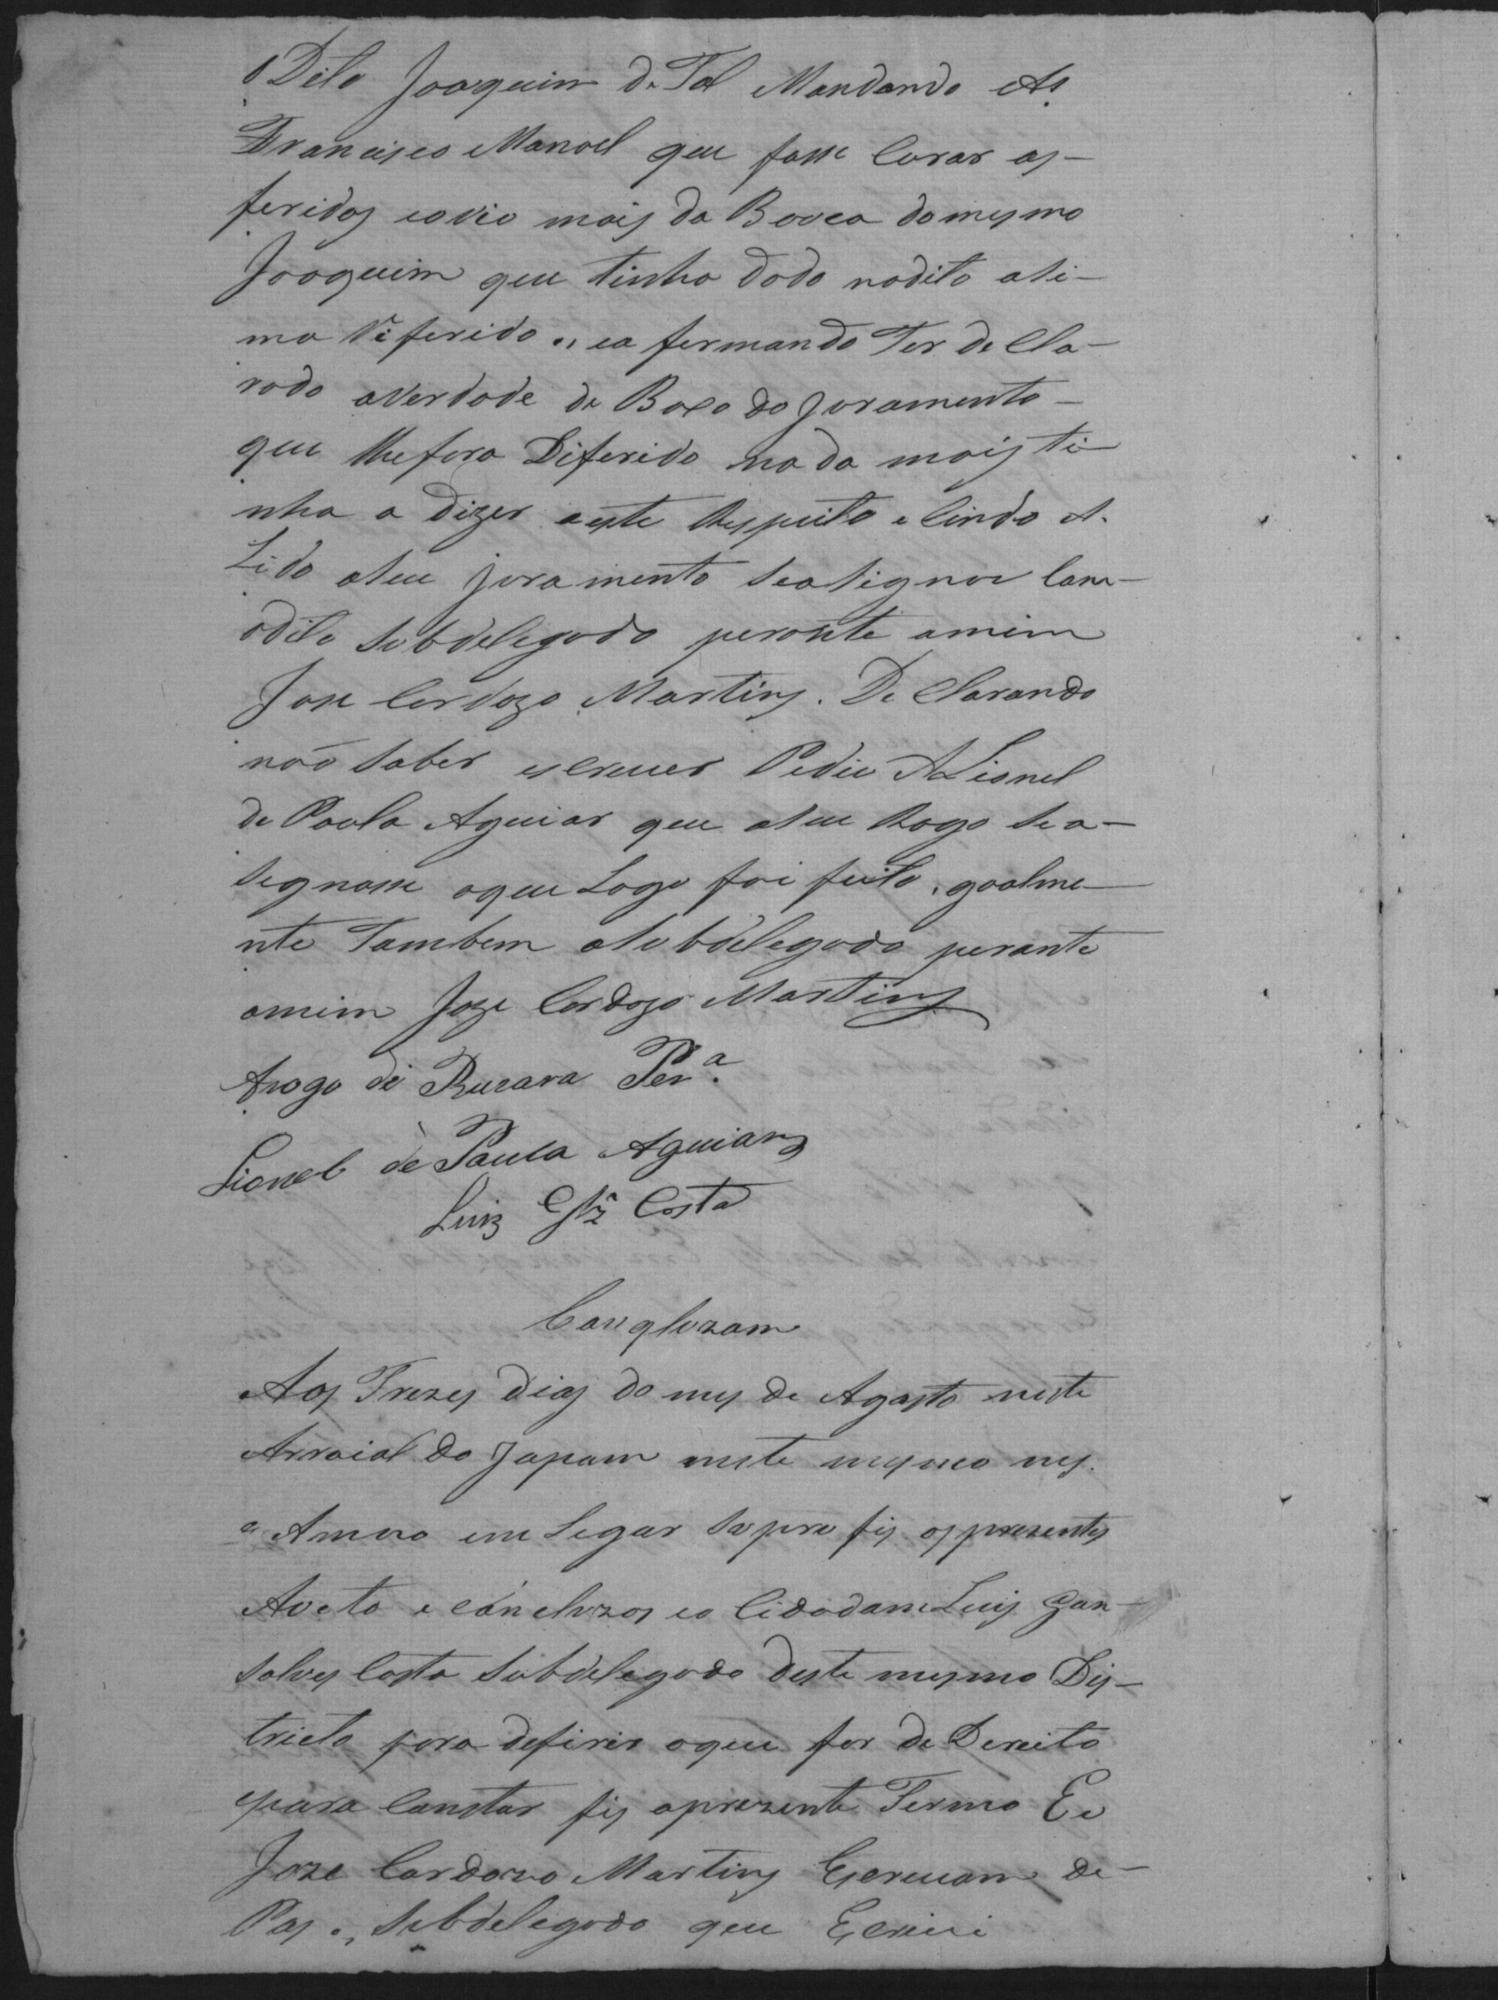 o Dito Joaquim de Tal Mandando A
Francisco Manoel que fosse Curar as
feridas e ovio mais da Booca do mesmo
Joaquim que tinha dado no dito asi-
ma Referido e afermando Ter de Cla-
rado a Verdade de Baxo do Juramento
que lhe fora Diferido nada mais ti-
nha a dizer a este Respeito e Sendo A.
Lido o seu juramento se a Signou Com
o dito Subdelegado perante a mim
Jose Cardozo Martins. De Clarando
não saber escrever Pedio A Lionel
de Paula Aguiar que o seu Rogo se a-
signasse o que Logo foi feito, goalme-
nte Tambem o Subdelegado perante
a mim Joze Cardozo Martins
Arogo de Per.ª
Lionel de Paula Aguiar
Luiz Glz Costa
Conqluzam
Aos Trezes dias do mes de Agosto neste
Arraial do Japam neste mesmo mes
e Anno em Legar Supra fis os prezentes
Aoto e cóncluzos eo Cidadam Luis Gon-
salves Costa Subdelegado deste mesmo Dis-
tricto para defirir o que for de Dereito
epara Constar fis o prezente Termo Eu
Joze Cardozo Martins Escrivam de
Pas e Subdelegado que Escrivi